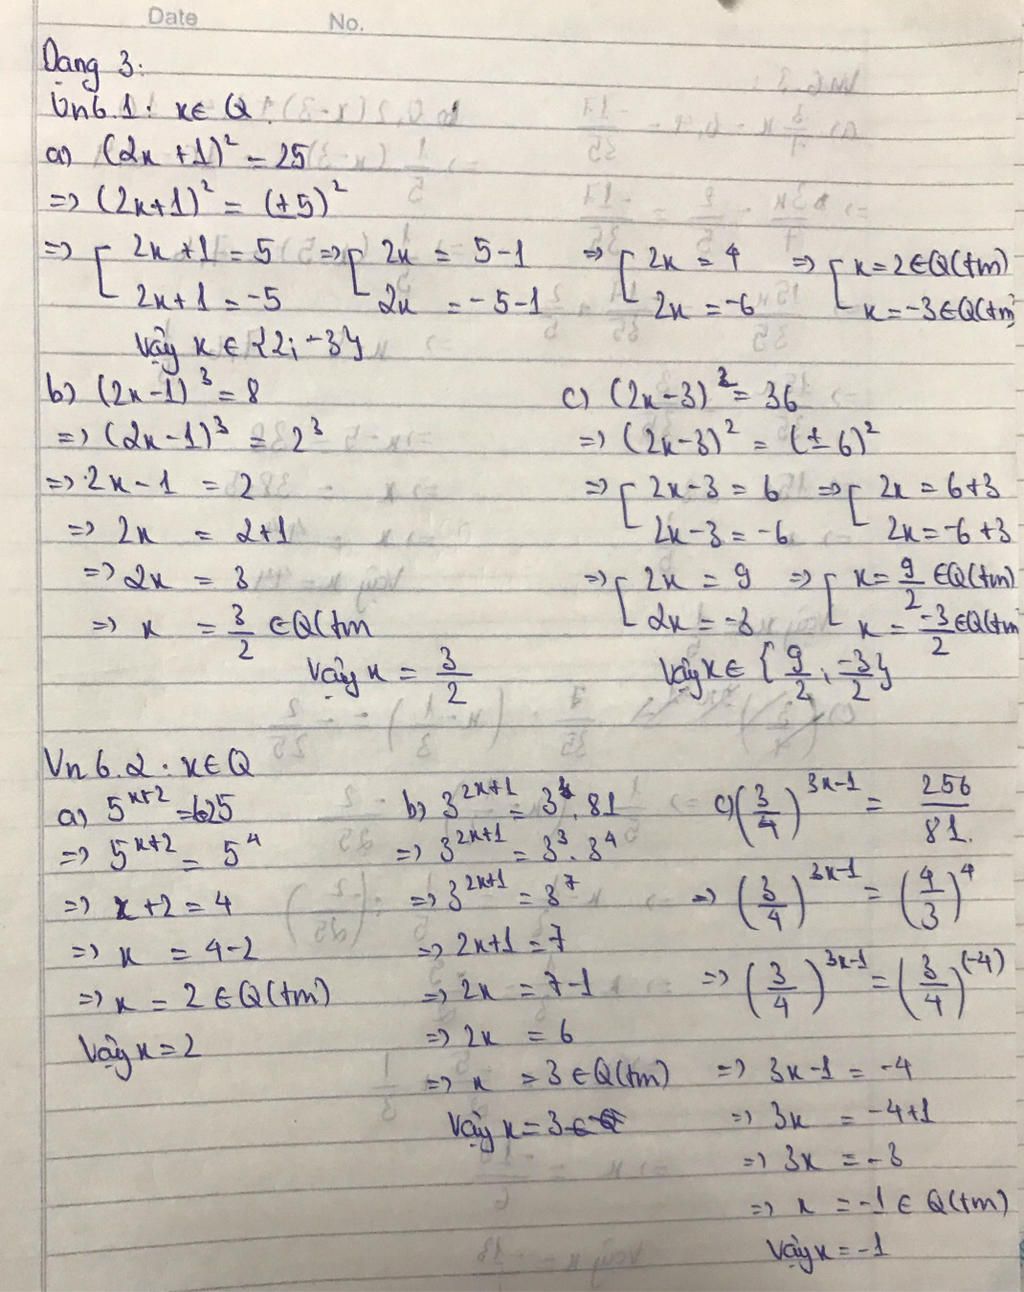 Date No.
Dạng 3:
Vn6.1: x∈Q
a) (2x+1)² = 25
=> (2x+1)² = (±5)²
=> [ 2x+1 = 5 => [ 2x = 5-1 => [ 2x = 4 => [ x=2∈Q(tm)
2x+1 = -5 2x = -5-1 2x = -6 x=-3∈Q(tm)
Vậy x∈{2; -3}
b) (2x-1)³ = 8
=> (2x-1)³ = 2³
=> 2x-1 = 2
=> 2x = 2+1
=> 2x = 3
=> x = 3/2 ∈Q(tm
Vậy x = 3/2
c) (2x-3)² = 36
=> (2x-3)² = (±6)²
=> [ 2x-3 = 6 => [ 2x = 6+3
2x-3 = -6 2x = -6+3
=> [ 2x = 9 => [ x = 9/2 ∈Q(tm)
2x = -3 x = -3/2 ∈Q(tm
Vậy x∈{9/2; -3/2}
Vn6.2: x∈Q
a) 5^(x+2) = 625
=> 5^(x+2) = 5⁴
=> x+2 = 4
=> x = 4-2
=> x = 2∈Q(tm)
Vậy x = 2
b) 3^(2x+1) = 3³.81
=> 3^(2x+1) = 3³.3⁴
=> 3^(2x+1) = 3⁷
=> 2x+1 = 7
=> 2x = 7-1
=> 2x = 6
=> x = 3∈Q(tm)
Vậy x = 3
c) (3/4)^(3x-1) = 256/81.
=> (3/4)^(3x-1) = (4/3)⁴
=> (3/4)^(3x-1) = (3/4)^(-4)
=> 3x-1 = -4
=> 3x = -4+1
=> 3x = -3
=> x = -1∈Q(tm)
Vậy x = -1